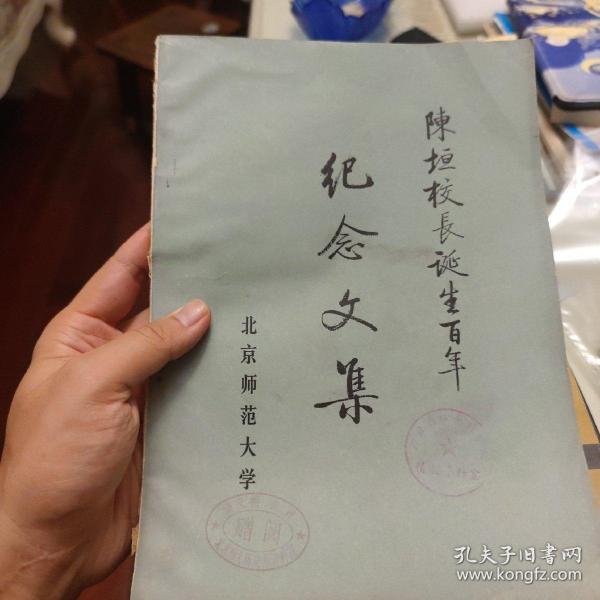 陳垣校長诞生百年
纪念文集
北京师范大学
赠阅
孔夫子旧书网
www.kongfz.com